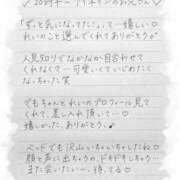 20時半〜アイキャンのお兄さん♡
「ずっと気になってた」って…嬉しい♡
れいのこと選んでくれてありがとう♡
人見知りでなかなか目合わせて
くれなくて…可愛くていじめたく
なっちゃった笑
でもちゃんとれいのプロフィール見て
くれて、差し入れ頂いて…
嬉しかった、ありがとう。♡
ベッドでも沢山いちゃいちゃしたね♡
顔と声に出ちゃうの、ドキドキしちゃう…
また会いたい…待ってる♡